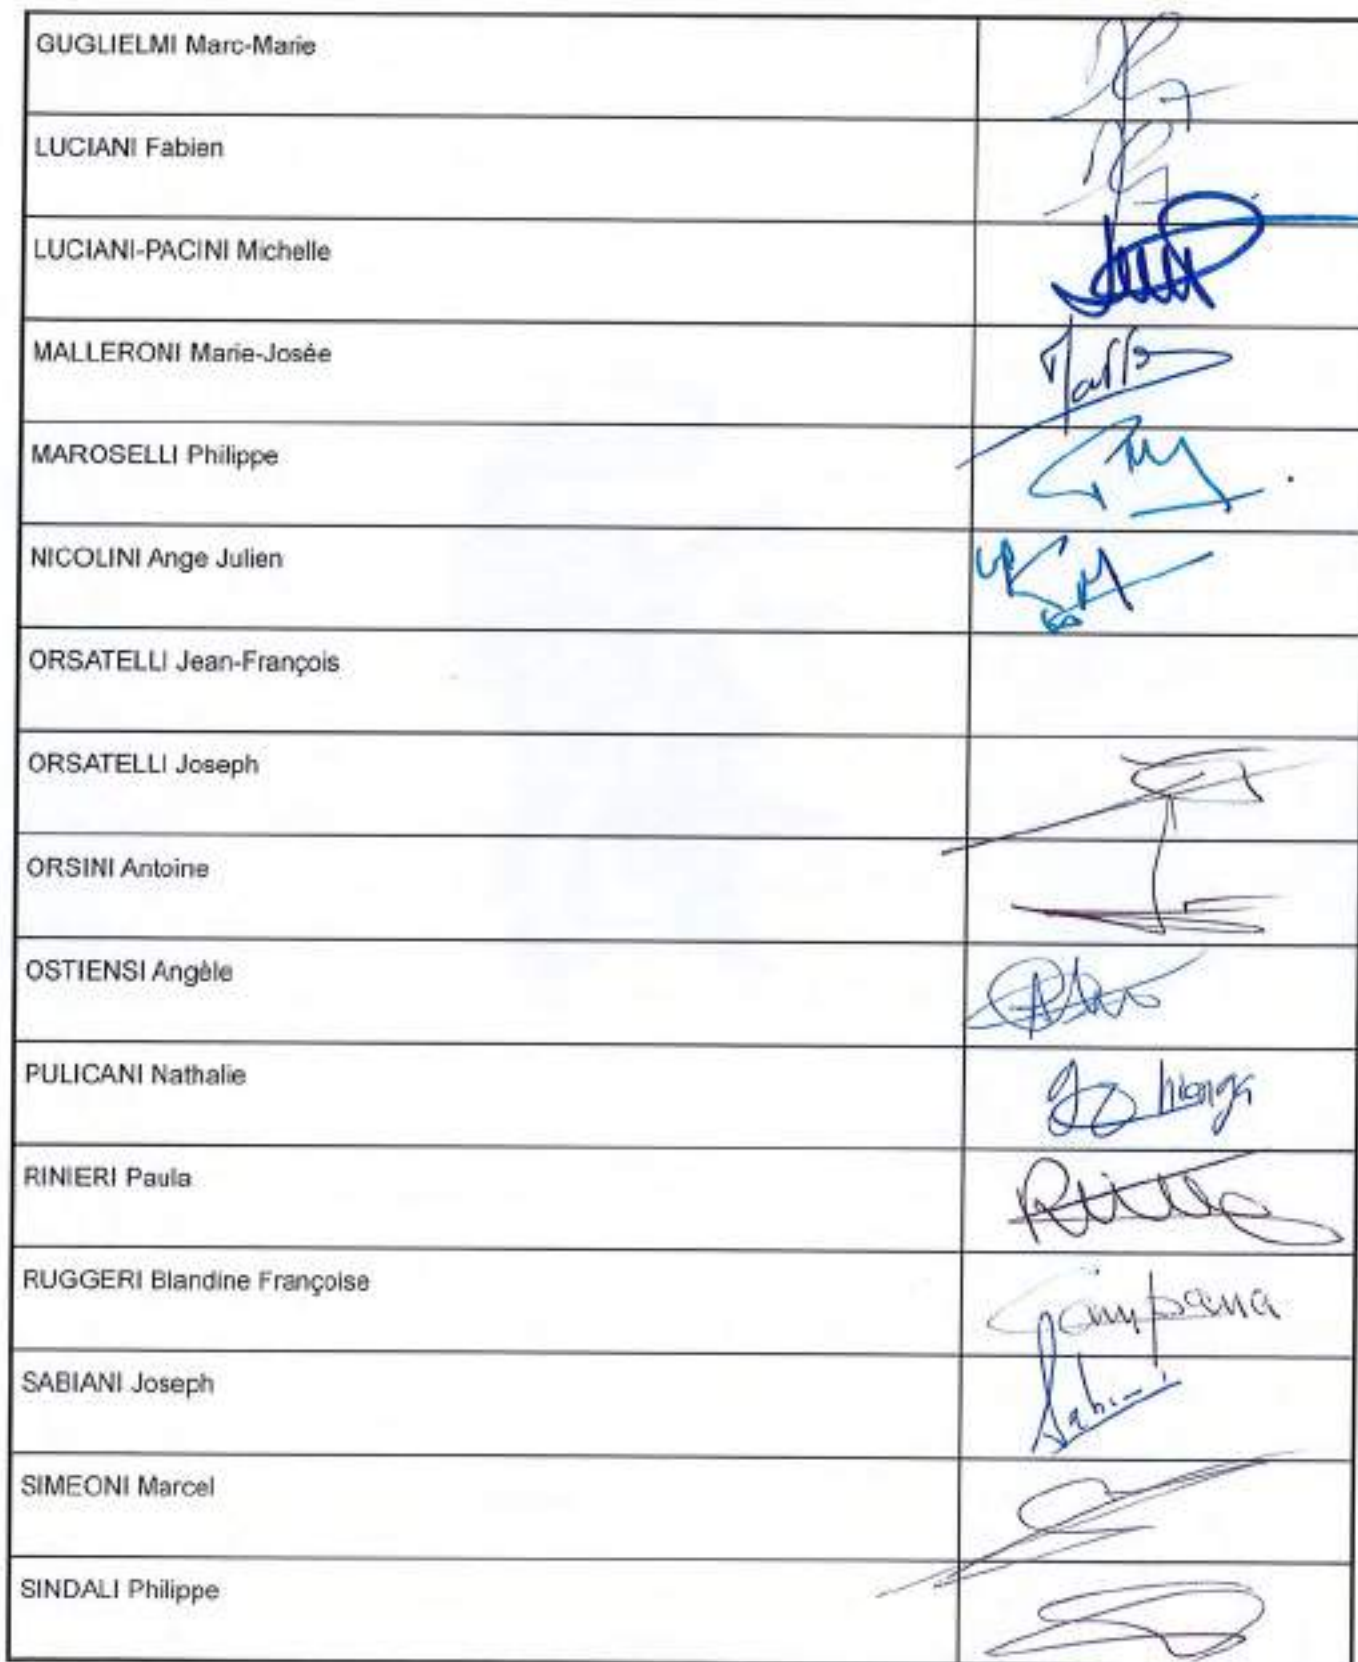 GUGLIELMI Marc-Marie
LUCIANI Fabien
LUCIANI-PACINI Michelle
MALLERONI Marie-Josée
MAROSELLI Philippe
NICOLINI Ange Julien
ORSATELLI Jean-François
ORSATELLI Joseph
ORSINI Antoine
OSTIENSI Angèle
PULICANI Nathalie
RINIERI Paula
RUGGERI Blandine Françoise
Campana
SABIANI Joseph
Sabiani
SIMEONI Marcel
SINDALI Philippe